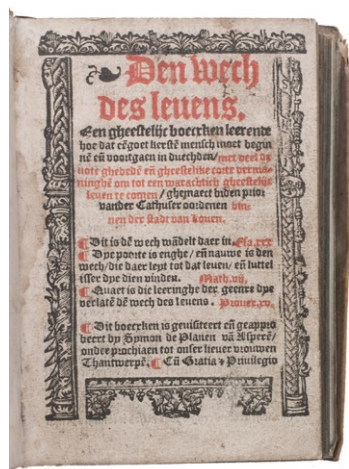 Den wech
des leuens.
Een gheestelijc boecxken leerende
hoe dat eēgoet kerstē mensch moet begin
nē eñ voortgaen in duechden/met veel deuote
ghebedē eñ gheestelike corte verma-
ninghē om tot een warachtich gheestelijck
leuen te comen/ghemaect biden prior
vander Cathuser oordenen bin-
nen der stadt van Louen.
¶ Dit is dē wech wādelt daer in. Esa.xxx
¶ Dye poorte is enghe/eñ nauwe is den
wech/die daer leyt tot dat leuen/eñ luttel
isser dye dien vinden. Math.vij.
¶ Quaet is die leeringhe der geenre dye
verlatē dē wech des leuens. Prouer.xv.
¶ Dit boecxken is geuisiteert eñ geappro
beert by Symon de Planen vā Asperē/
onder prochiaen tot onser lieuer vrouwen
Thantwerpē. ¶ Cū Gratia & Priuilegio